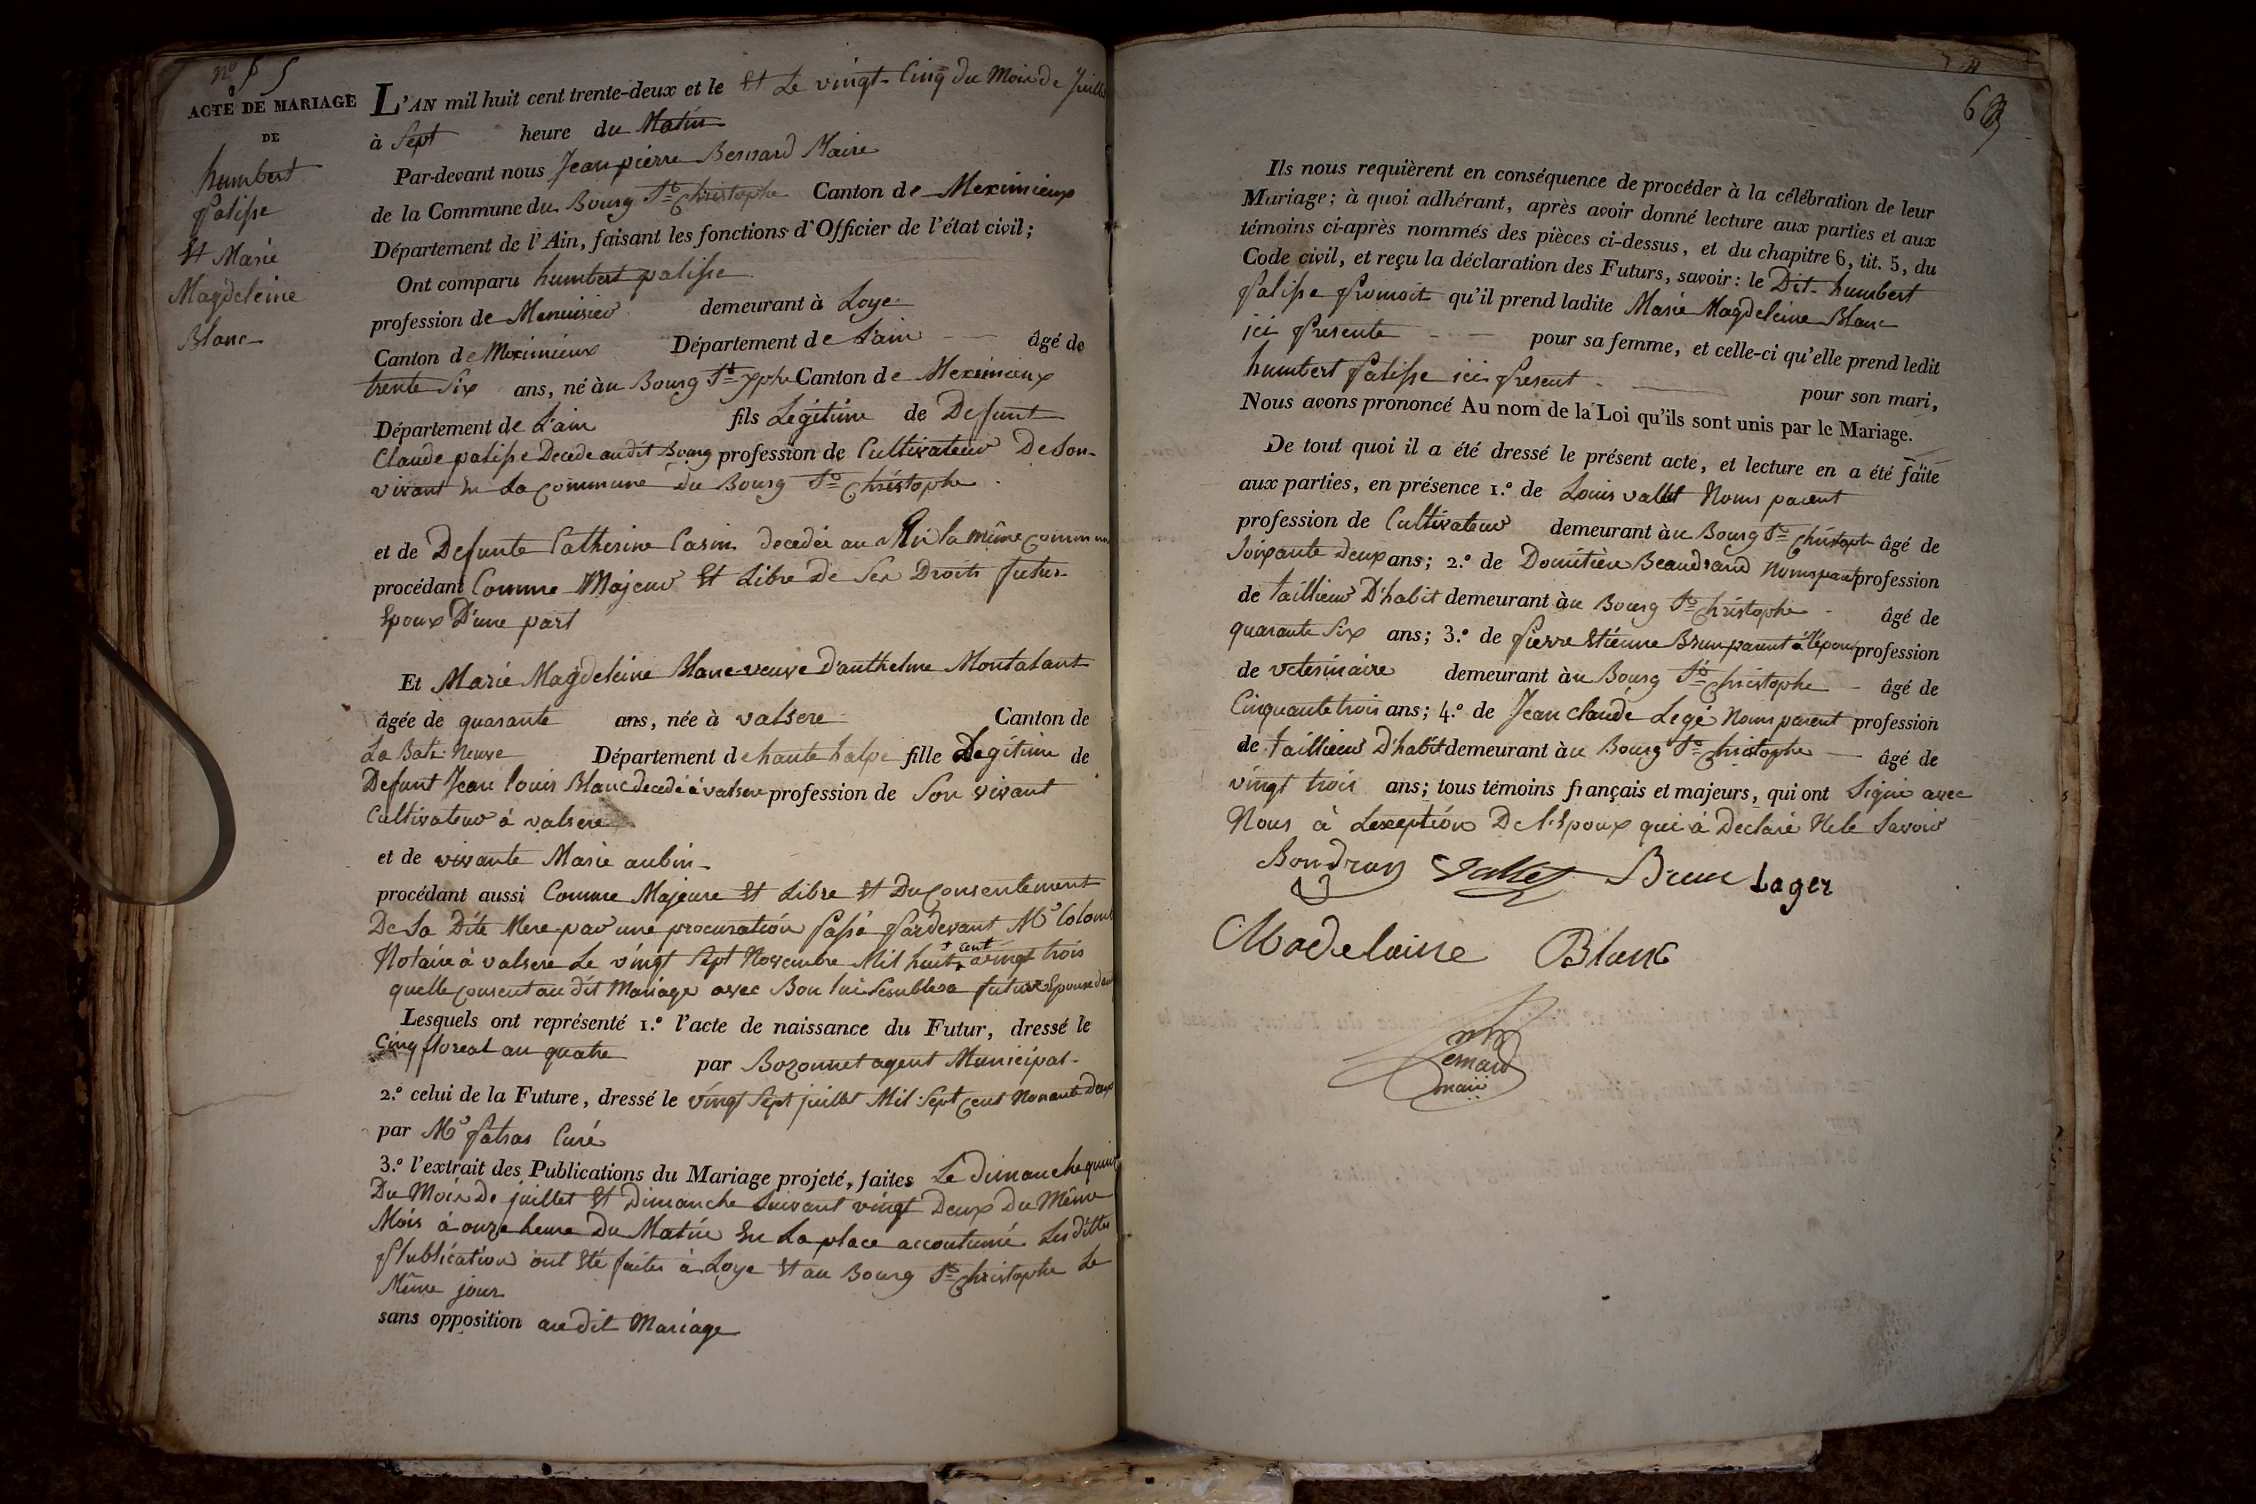 nº 5
ACTE DE MARIAGE
DE
humbert
palisse
Et Marie
Magdeleine
Blanc
L'AN mil huit cent trente-deux et le Et Le vingt-Cinq du Mois de Juillet
à Sept heure du Matin
Par-devant nous Jean pierre Bernard Maire
de la Commune du Bourg St Christophe Canton de Meximieux
Département de l'Ain, faisant les fonctions d'Officier de l'état civil;
Ont comparu humbert palisse
profession de Menuisier demeurant à Loye
Canton de Meximieux Département de Lain âgé de
trente Six ans, né àu Bourg St Xphe Canton de Meximieux
Département de Lain fils Légitime de Defunt
Claude palisse Decede audit Bourg profession de Cultivateur De Son
vivant En La Commune du Bourg St Christophe
et de Defunte Catherine Casin decedée au En la même Commune
procédant Comme Majeur Et Libre De Ses Droits futur
Epoux D'une part
Et Marie Magdeleine Blanc veuve D'anthelme Montalant
âgée de quarante ans, née à valsere Canton de
La Bati Neuve Département de haute halpe fille Legitime de
Defunt Jean louis Blanc decedé à valsere profession de Son vivant
Cultivateur à valsere
et de vivante Marie aubin
procédant aussi Comme Majeure Et Libre Et Du Consentement
De Sa Dite Mere par une procuration passé pardevant Mr Colomb
Notaire à valsere Le vingt Sept Novembre Mil huit cent vingt trois
quelle Consent au dit Mariage avec Bon lui Semblera future Epouse
Lesquels ont représenté 1.º l'acte de naissance du Futur, dressé le
Cinq floreal an quatre par Bozonnet agent Municipal
2.º celui de la Future, dressé le vingt Sept juillet Mil Sept Cent Nonante Deux
par Mr patras Curé
3.º l'extrait des Publications du Mariage projeté, faites Le dimanche quinze
Du Mois De juillet Et Dimanche Suivant vingt Deux Du Même
Mois à onze heure Du Matin En La place accoutumé Les dittes
Publication ont Eté faites à Loye Et au Bourg St Christophe Le
Même jour
sans opposition audit Mariage
Ils nous requièrent en conséquence de procéder à la célébration de leur
Mariage; à quoi adhérant, après avoir donné lecture aux parties et aux
témoins ci-après nommés des pièces ci-dessus, et du chapitre 6, tit. 5, du
Code civil, et reçu la déclaration des Futurs, savoir: le Dit humbert
palisse promoit qu'il prend ladite Marie Magdeleine Blanc
ici presente pour sa femme, et celle-ci qu'elle prend ledit
humbert palisse ici present pour son mari,
Nous avons prononcé Au nom de la Loi qu'ils sont unis par le Mariage.
De tout quoi il a été dressé le présent acte, et lecture en a été faite
aux parties, en présence 1.º de Louis vallet Noms parent
profession de Cultivateur demeurant àu Bourg St Christophe âgé de
Soixante deux ans; 2.º de Domitien Beaudrand Noms parent profession
de tailleur D'habit demeurant àu Bourg St Christophe âgé de
quarante Six ans; 3.º de pierre Etienne Brun parent à l'epoux profession
de veterinaire demeurant àu Bourg St Christophe âgé de
Cinquante trois ans; 4.º de Jean Claude Legé Noms parent profession
de tailleur D'habit demeurant àu Bourg St Christophe âgé de
vingt trois ans; tous témoins français et majeurs, qui ont Signé avec
Nous à Lexeption De l'Epoux qui à Declaré Ne le Savoir
Bondran Vallet Brun Lager
Madelaine Blanc
Bernard
maire